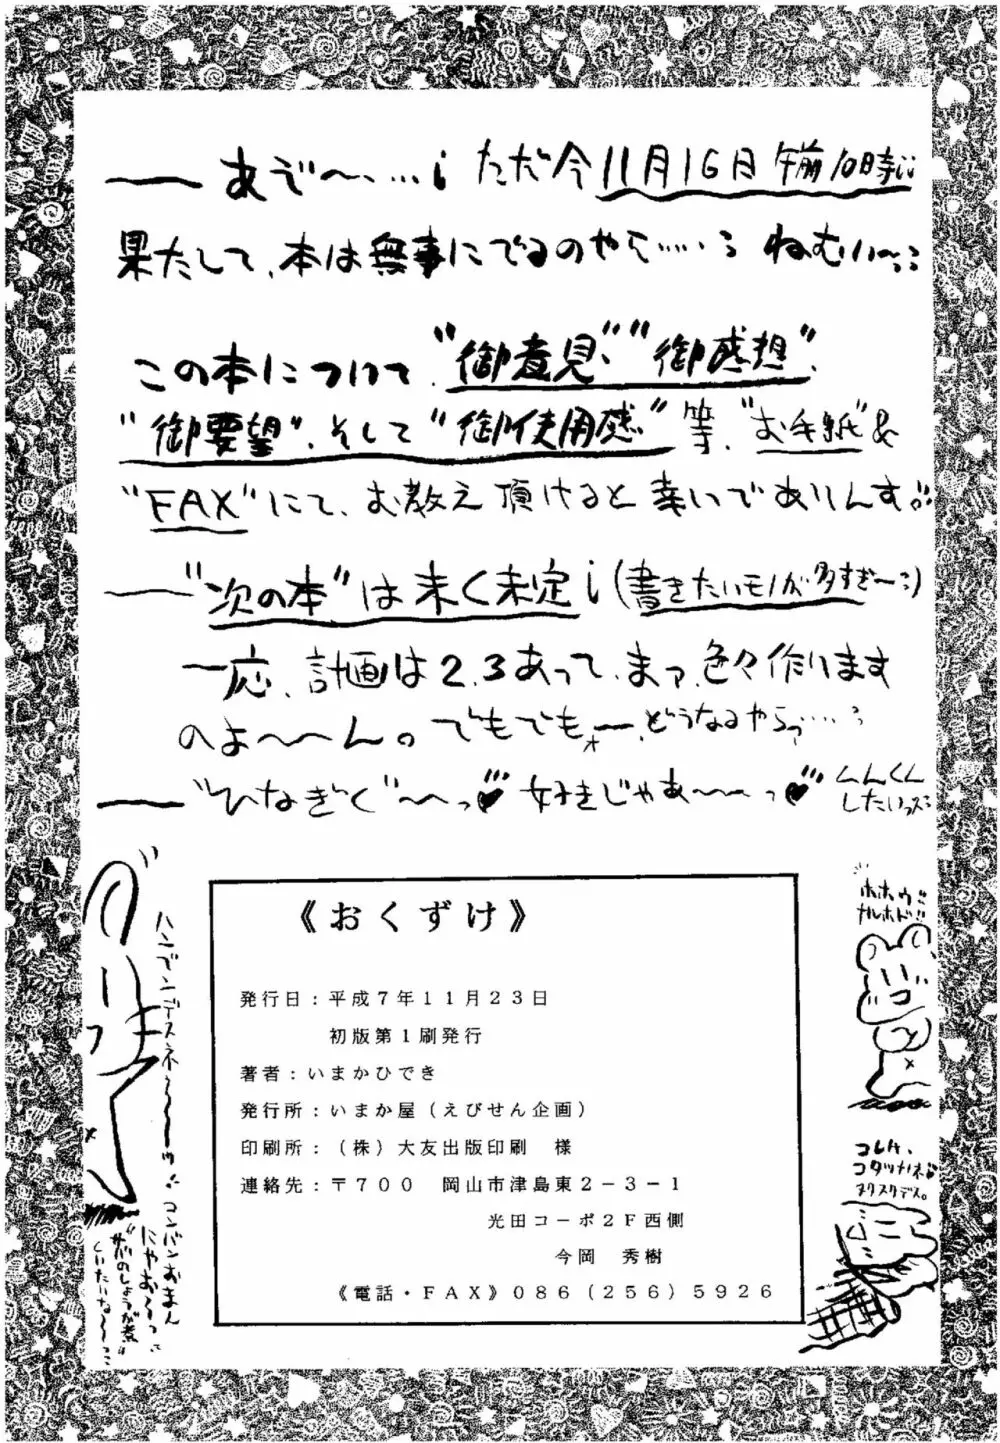 あぞ〜、…¡ ただ今11月16日午前10時¡¡
果たして、本は無事にでるのやら……? ねむい〜?
この本について、"御意見"、"御感想"、
"御要望"、そして"御使用感"等、"お手紙"&
"FAX"にて、お教え頂けると幸いでありんす。
"次の本"は未く未定¡(書きたいモノが多すぎ〜?)
一応、計画は2、3あって、まァ、色々作ります
のよ〜〜ん。でもでも、どうなるやらっ……?
"ひなぎく"〜っ♥好きじゃあ〜〜っ♥
くんくん
したいっス
ハンブンデスネ〜〜ッ
コンバンおまん
にゃお〜っ
"サバのしょうが煮"
くいたいね〜っ
ホホウ
ナルホド!!
《おくずけ》
発行日：平成7年11月23日
初版第1刷発行
著者：いまかひでき
発行所：いまか屋（えびせん企画）
印刷所：（株）大友出版印刷　様
連絡先：〒700　岡山市津島東2－3－1
光田コーポ2F西側
今岡　秀樹
《電話・FAX》086（256）5926
コレハ、
コタツナネコ
ヌクヌクデス。